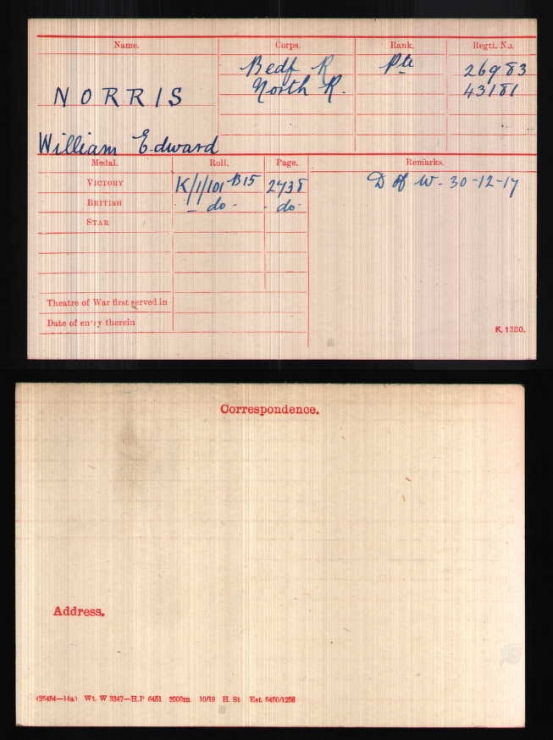 Name. Corps. Rank. Regtl. No.
Bedf R Pte 26983
NORRIS North R. 43181
William Edward
Medal. Roll. Page. Remarks.
VICTORY K/1/101 B15 2738 D of W. 30-12-17
BRITISH - do - - do -
STAR
Theatre of War first served in
Date of entry therein
K. 1380.
Correspondence.
Address.
Wt. W 3347—H.P 6451 2000m 10/19 H. St